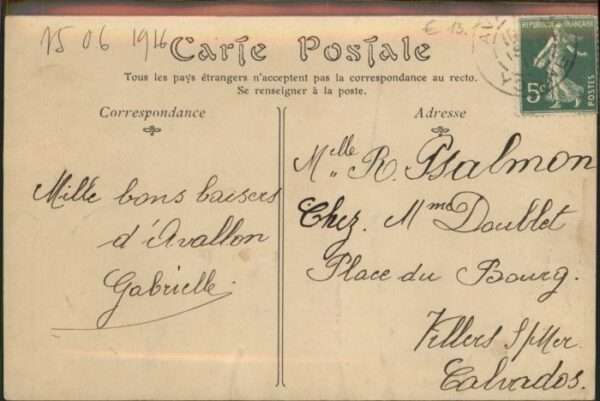 15 06 1916
€ 13.
Carte Postale
Tous les pays étrangers n'acceptent pas la correspondance au recto.
Se renseigner à la poste.
Correspondance
Mille bons baisers
d'Avallon
Gabrielle.
Adresse
Melle R. Psalmon
Chez. Mme Doublet
Place du Bourg.
Villers S/Mer.
Calvados.
REPUBLIQUE FRANÇAISE
5c
POSTES